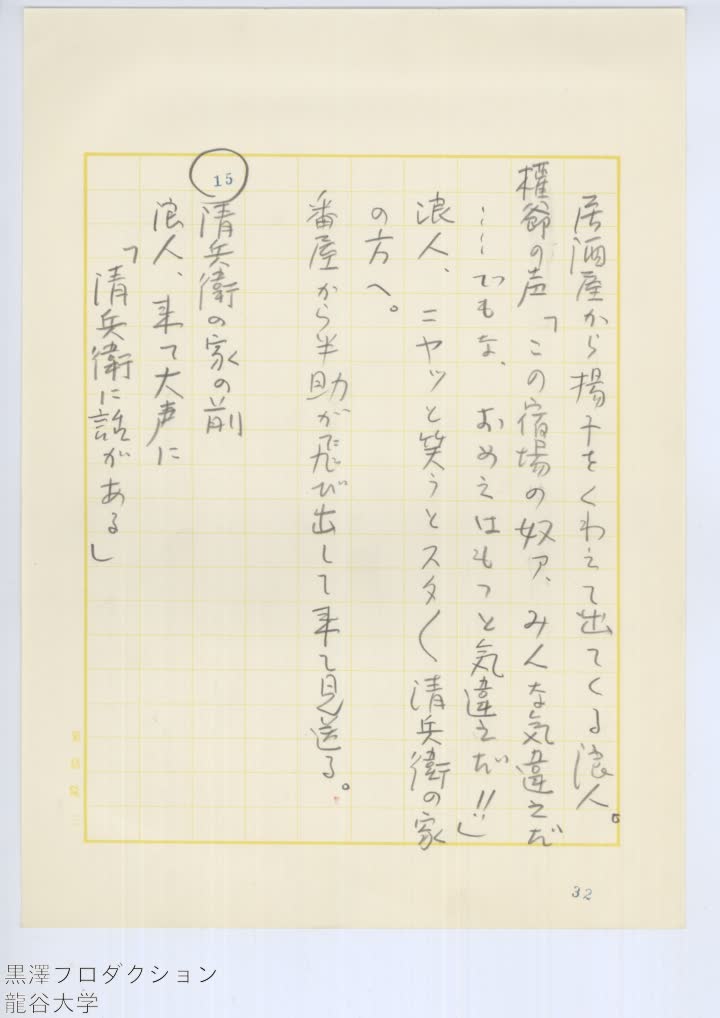 居酒屋から揚子をくわえて出てくる浪人。
権爺の声「この宿場の奴ァ、みんな気違えだ
……でもな、おめえはもっと気違えだ!!」
浪人、ニヤッと笑うとスタ〱清兵衛の家
の方へ。
番屋から半助が飛び出して来て見送る。
15
清兵衛の家の前
浪人、来て大声に
「清兵衛に話がある」
32
黒澤プロダクション
龍谷大学